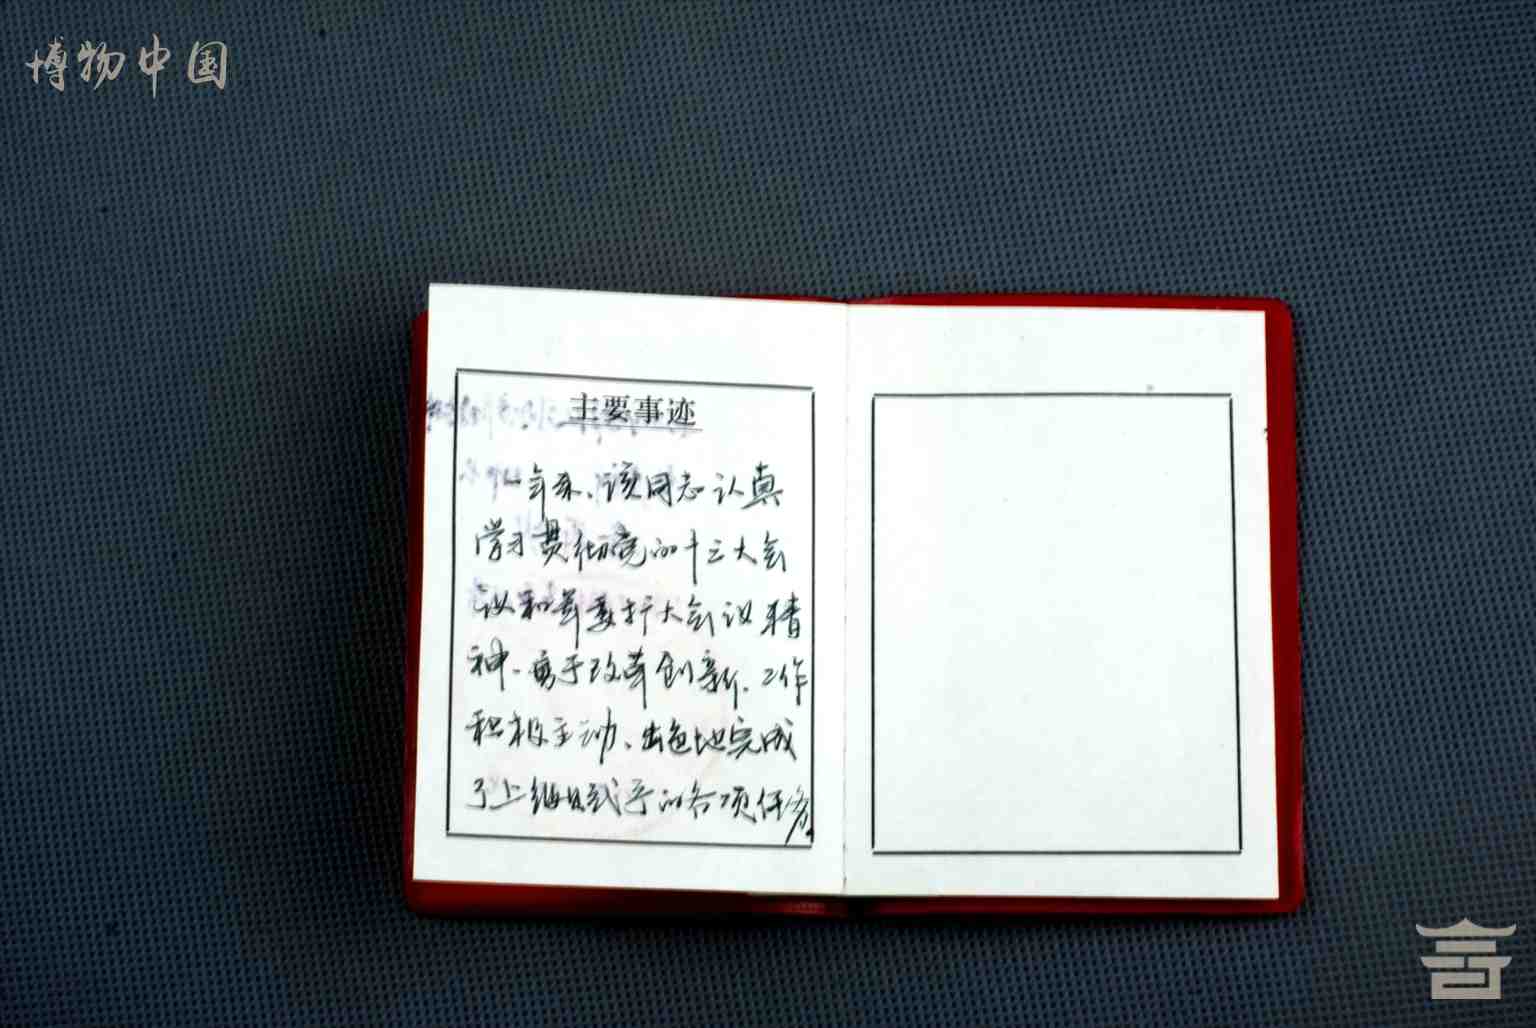 博物中国
主要事迹
一年来、该同志认真
学习贯彻党的十三大会
议和军委扩大会议精
神、勇于改革创新、工作
积极主动、出色地完成
了上级赋予的各项任务